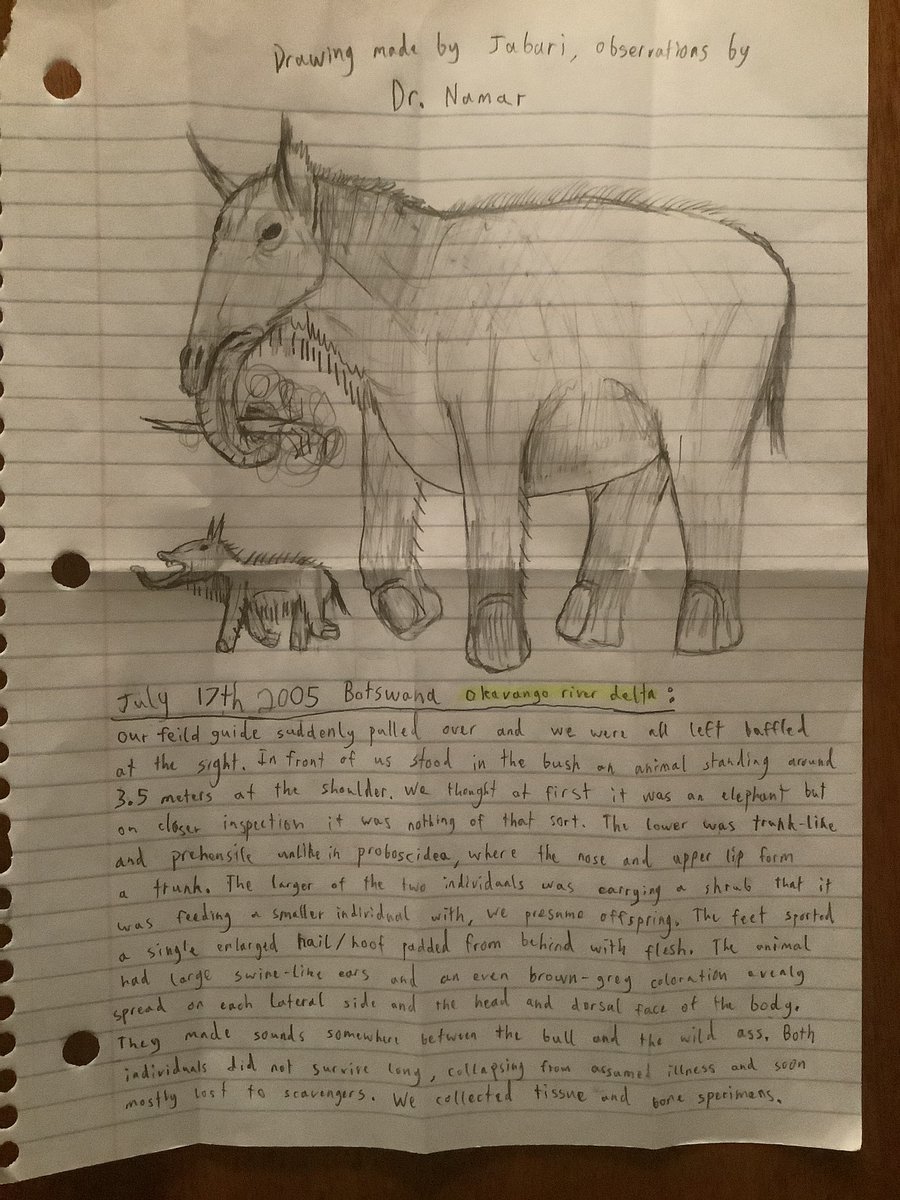 Drawing made by Jabari, observations by
Dr. Namar
July 17th 2005 Botswana Okavango river delta:
our feild guide suddenly pulled over and we were all left baffled
at the sight. In front of us stood in the bush an animal standing around
3.5 meters at the shoulder. We thought at first it was an elephant but
on closer inspection it was nothing of that sort. The lower was trunk-like
and prehensile unlike in proboscidea, where the nose and upper lip form
a trunk. The larger of the two individuals was carrying a shrub that it
was feeding a smaller individual with, we presume offspring. The feet sported
a single enlarged nail/hoof padded from behind with flesh. The animal
had large swine-like ears and an even brown-grey coloration evenly
spread on each lateral side and the head and dorsal face of the body.
They made sounds somewhere between the bull and the wild ass. Both
individuals did not survive long, collapsing from assumed illness and soon
mostly lost to scavengers. We collected tissue and bone specimens.